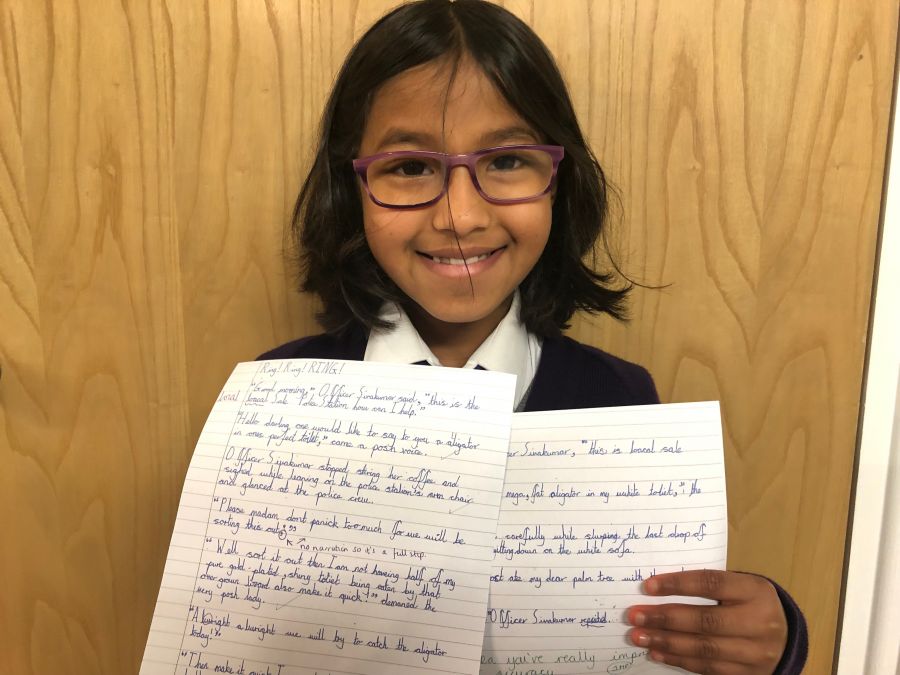 Ring! Ring! RING!
"Good morning," Officer Sivakumar said, "this is the
local local Sale Police Station how can I help."
"Hello darling one would like to say to you a aligator
in ones perfect toilet," came a posh voice.
Officer Sivakumar stopped stiring her coffee and
sighed while leaning on the police station's arm chair
and glanced at the police crew.
"Please madam dont panick too much for we will be
sorting this out."
no narration so it's a full stop.
"Well sort it out then I am not having half of my
pure gold-plated, shiny toilet being eaten by that
over grown lizard also make it quick!" demaned the
very posh lady.
"Alright alwright we will by to catch the aligator
today!"
"Then make it quick I
er Sivakumar, "this is loacal sale
mega, fat aligator in my white toilet," the
carefully while slurping the last drop of
sitting down on the white sofa.
ost ate my dear palm tree with the
"Officer Sivakumar
ea you've really impr
accuracy